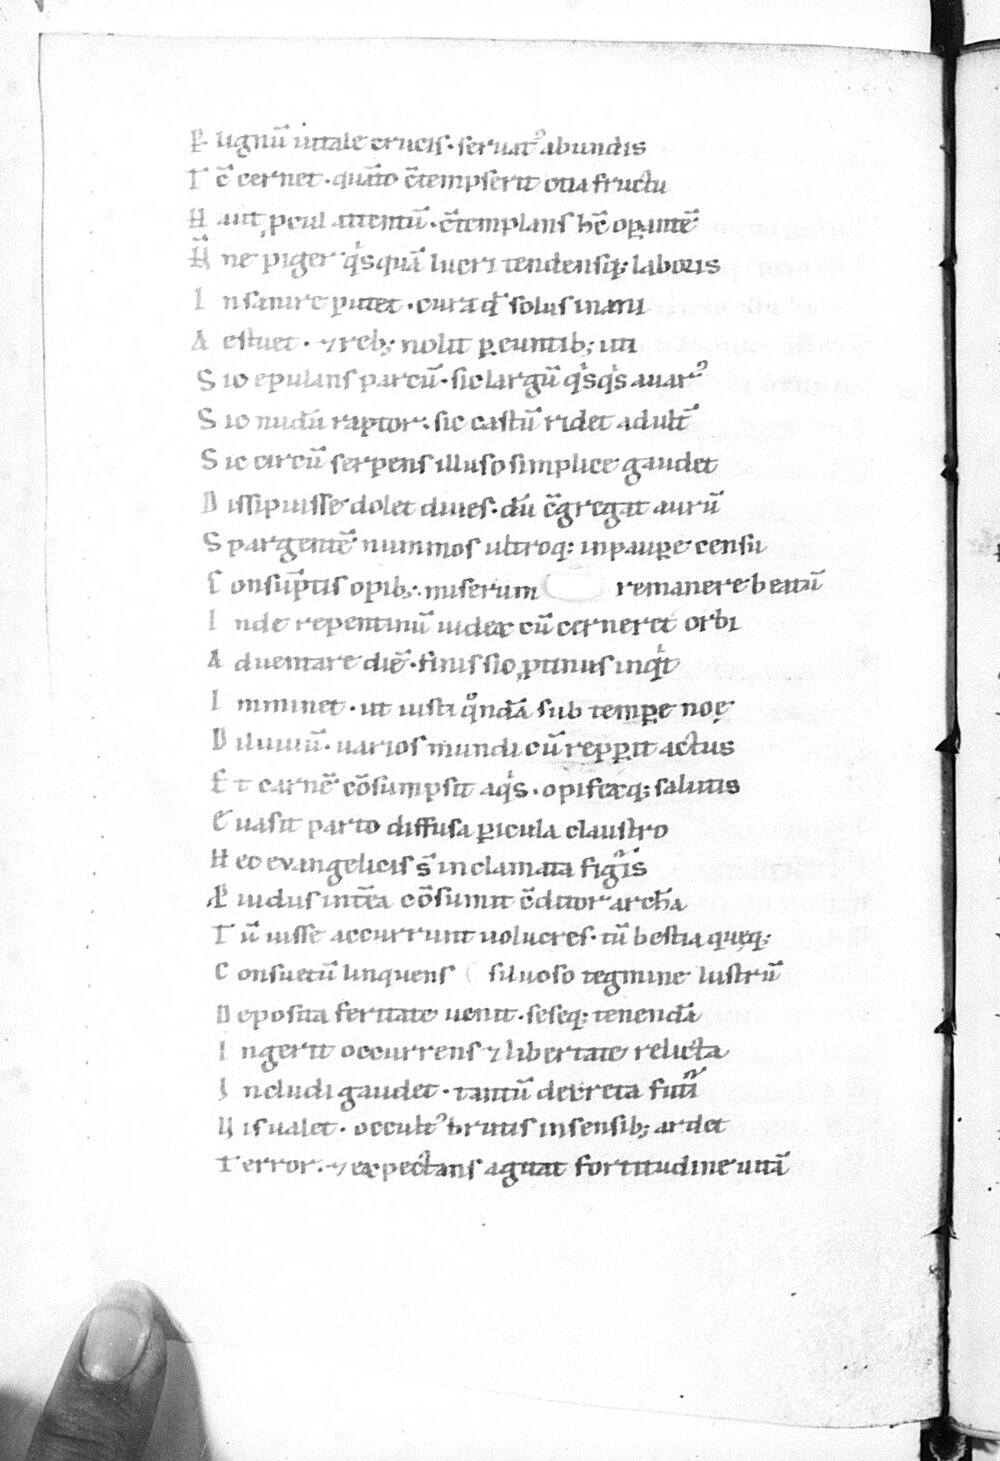 P̲ lignū uitale crucis · seruat᾽ abundis
T c̄ cernet · quāto c̄tempserit otia fructu
H aut ꝓcul attentū · c̄templans hc̄ oꝑantē
H̄ ne piger qͥsquā lucri tendensq; laboris
I nsanire putet · cura qđ solus inani
A estuet · ⁊ reb; nolit ꝑeuntib; uti
S ic epulans parcū · sic largū qͥsqͥs auar᾽
S ic nudū raptor · sic castū ridet adult̄
S ic circū serpens illuso simplice gaudet
D issipuisse dolet diues · dū c̄gregat aurū
S pargentē nummos ultroq; in pauꝑe censu
C onsūptis opib; · miserum remanere beatū
I nde repentinū iudex cū cerneret orbi
A duentare diē · finis sic ꝓtinus inqͥt
I mminet · ut iusti qͦndā sub tempꝑe noę
D iluuiū · uarios mundi cū repꝑit actus
E t carnē cōsumpsit aqͥs · opifexq; salutis
E uasit parto diffusa ꝑicula claustro
H ec evangelicis s̄ inclamata figͥis
P̲ uidus int̄ea cōsumit c̄ditor archā
T ū iusse accurrunt uolucres · tū bestia quęq;
C onsuetū linquens siluoso tegmine lustrū
D eposita feritate uenit · seseq; tenendā
I ngerit occurrens ⁊ libertate relicta
I ncludi gaudet · tantū decreta futͥi
U is ualet · occult᾽ brutis in sensib; ardet
T error · ⁊ expectans aguat fortitudine uitā